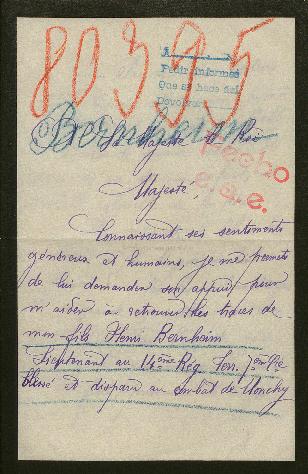 80395
A
Pedir informes
Que se hace del
Devolver
Bernheim
Sa Majesté le Roi
hecho
e.a.e.
Majesté,
Connaissant ses sentiments
généreux et humains, je me permets
de lui demander son appui pour
m'aider à retrouver les traces de
mon fils Henri Bernheim
Lieutenant au 14ème Rég. Terr. 7ème Cie
blessé et disparu au combat de Monchy